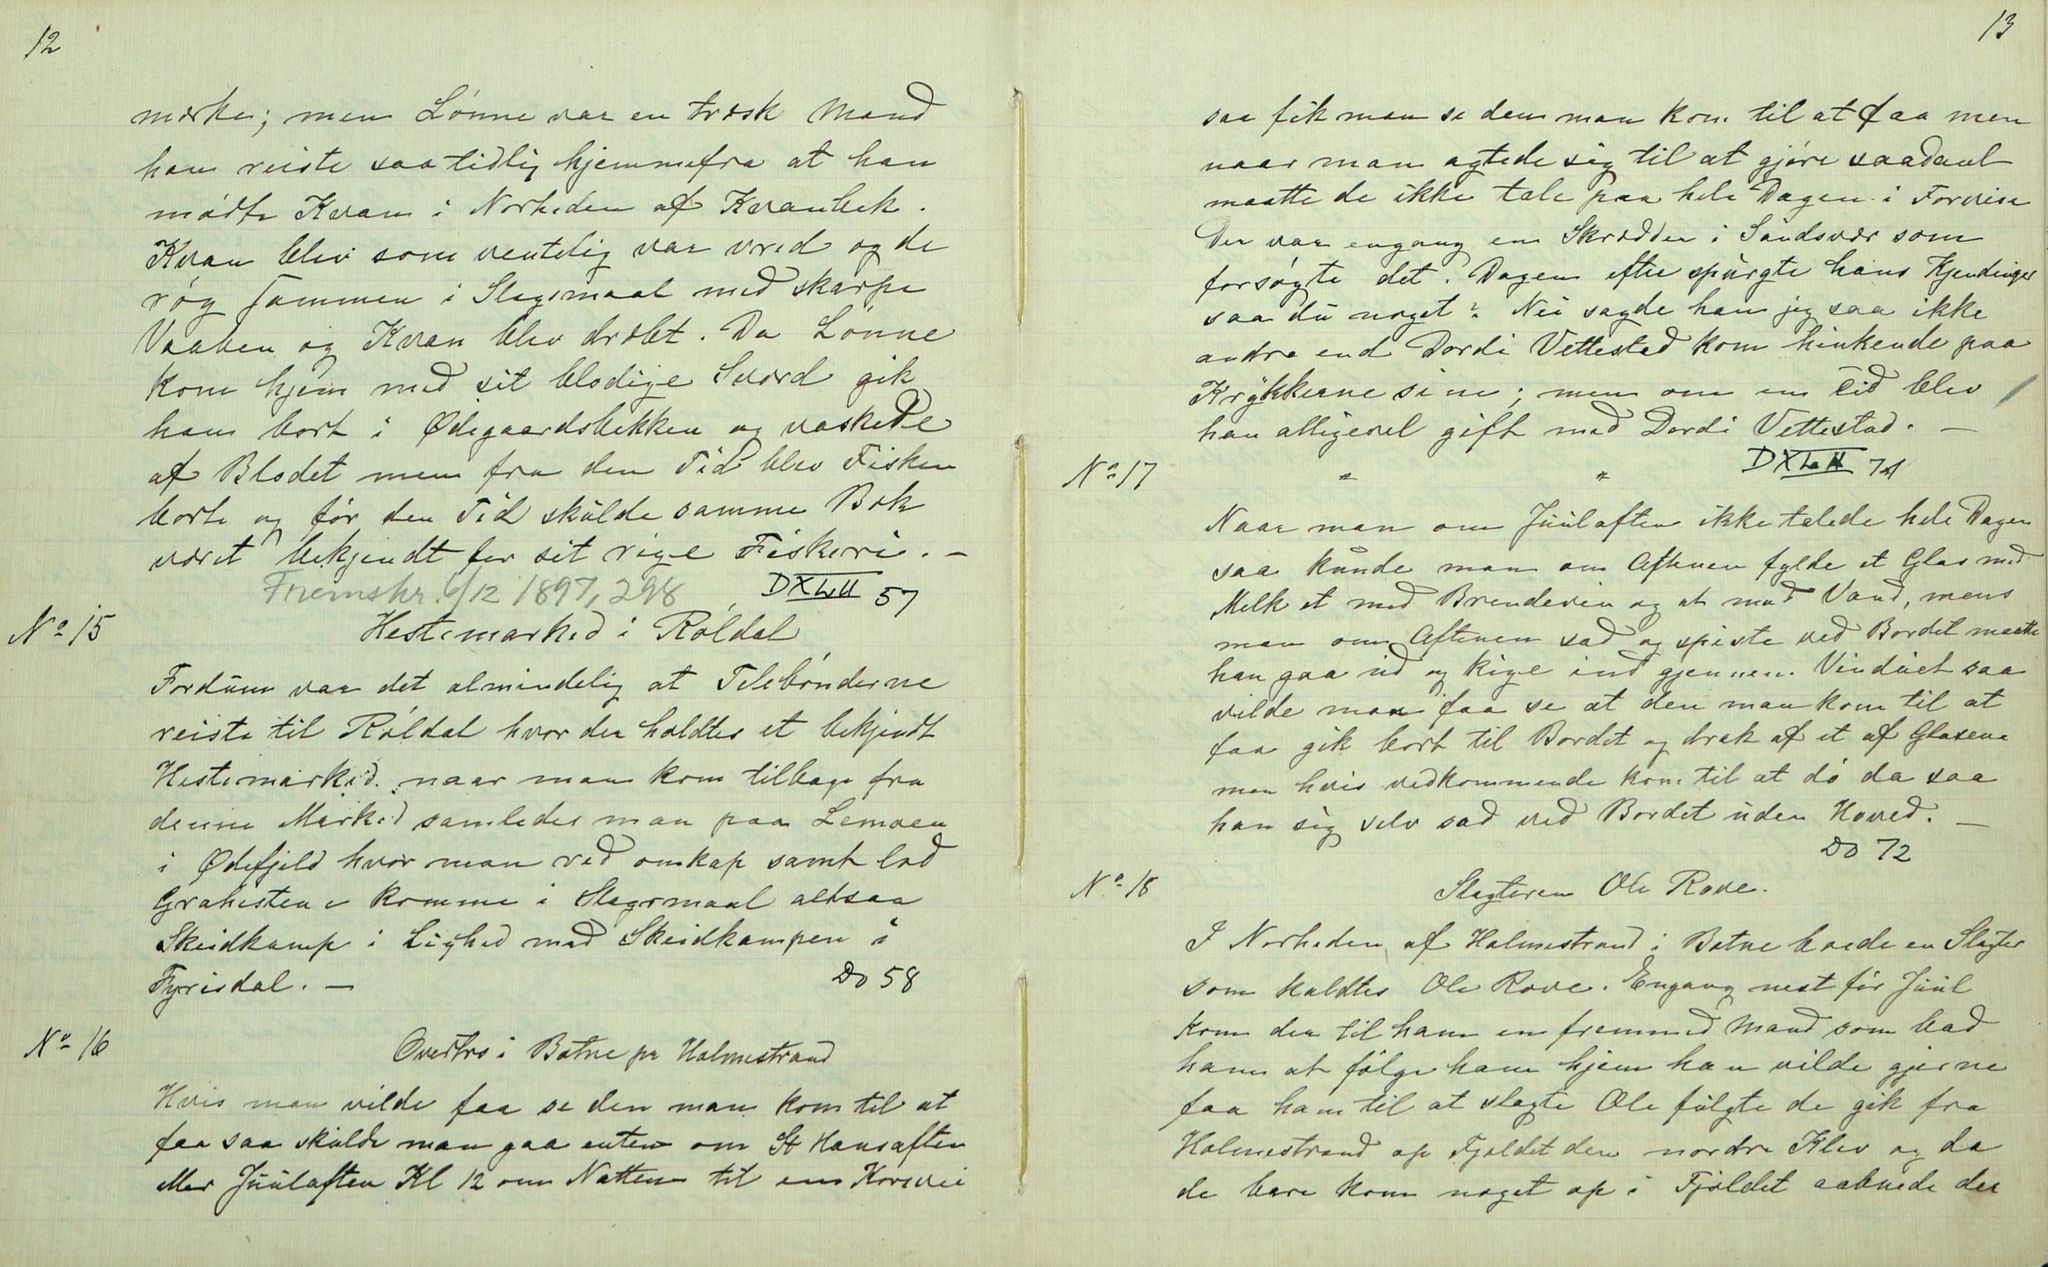 12
mærke; men Lønne var en træsk Mand
han reiste saa tidlig hjemmefra at han
mødte Kvan i Nærheden af Kvanbek.
Kvan blev som ventelig var vred og de
røg sammen i Slagsmaal med skarpe
Vaaben og Kvan blev dræbt. Da Lønne
kom hjem med sit blodige Sværd gik
han bort i Ødegaardsbekken og vaskede
af Blodet men fra den Tid blev Fisken
borte og før den Tid skulde samme Bæk
været bekjendt for sit rige Fiskeri. —
Fremskr. 6/12 1897, 298 DXLII 57
No 15 Hestemarked i Røldal
Fordum var det almindelig at Telebønderne
reiste til Røldal hvor der holdtes et bekjendt
Hestemarked. naar man kom tilbage fra
denne Marked samledes man paa Lemoen
i Ødefjeld hvor man red omkap samt lod
Grahestene komme i Slagsmaal altsaa
Skeidkamp i Lighed med Skeidkampen i
Fyrisdal. — Do 58
No 16 Overtro i Botne pr Holmestrand
Hvis man vilde faa se den man kom til at
faa saa skulde man gaa enten om St Hansaften
eller Juulaften Kl 12 om Natten til en Korsvei
13
saa fik man se den man kom til at faa men
naar man agtede sig til at gjøre saadant
maatte de ikke tale paa hele Dagen i Forveien
Der var engang en Skrædder i Sandsvær som
forsøgte det. Dagen efter spurgte hans Kjendinger
saa du noget? Nei sagde han jeg saa ikke
andre end Dordi Vettestad kom hinkende paa
Krykkerne sine; men om en Tid blev
han alligevel gift med Dordi Vettestad. —
No 17 " " DXLII 71
Naar man om Juulaften ikke talede hele Dagen
saa kunde man om Aftenen fylde et Glas med
Melk et med Brendevin og et med Vand, mens
man om Aftenen sad og spiste ved Bordet maatte
han gaa ud og kige ind gjennem Vinduet saa
vilde man faa se at den man kom til at
faa gik bort til Bordet og drak af et af Glasene
men hvis vedkommende kom til at dø da saa
han sig selv sad ved Bordet uden Hoved. —
Do 72
No 18 Slagteren Ole Rove.
I Nærheden af Holmestrand i Botne boede en Slagter
som kaldtes Ole Rove. Engang nest før Juul
kom der til ham en fremmed Mand som bad
ham at følge ham hjem han vilde gjerne
faa ham til at slagte Ole fulgte de gik fra
Holmestrand op Fjeldet den nordre Klev og da
de bare kom noget op i Fjeldet aabnede der